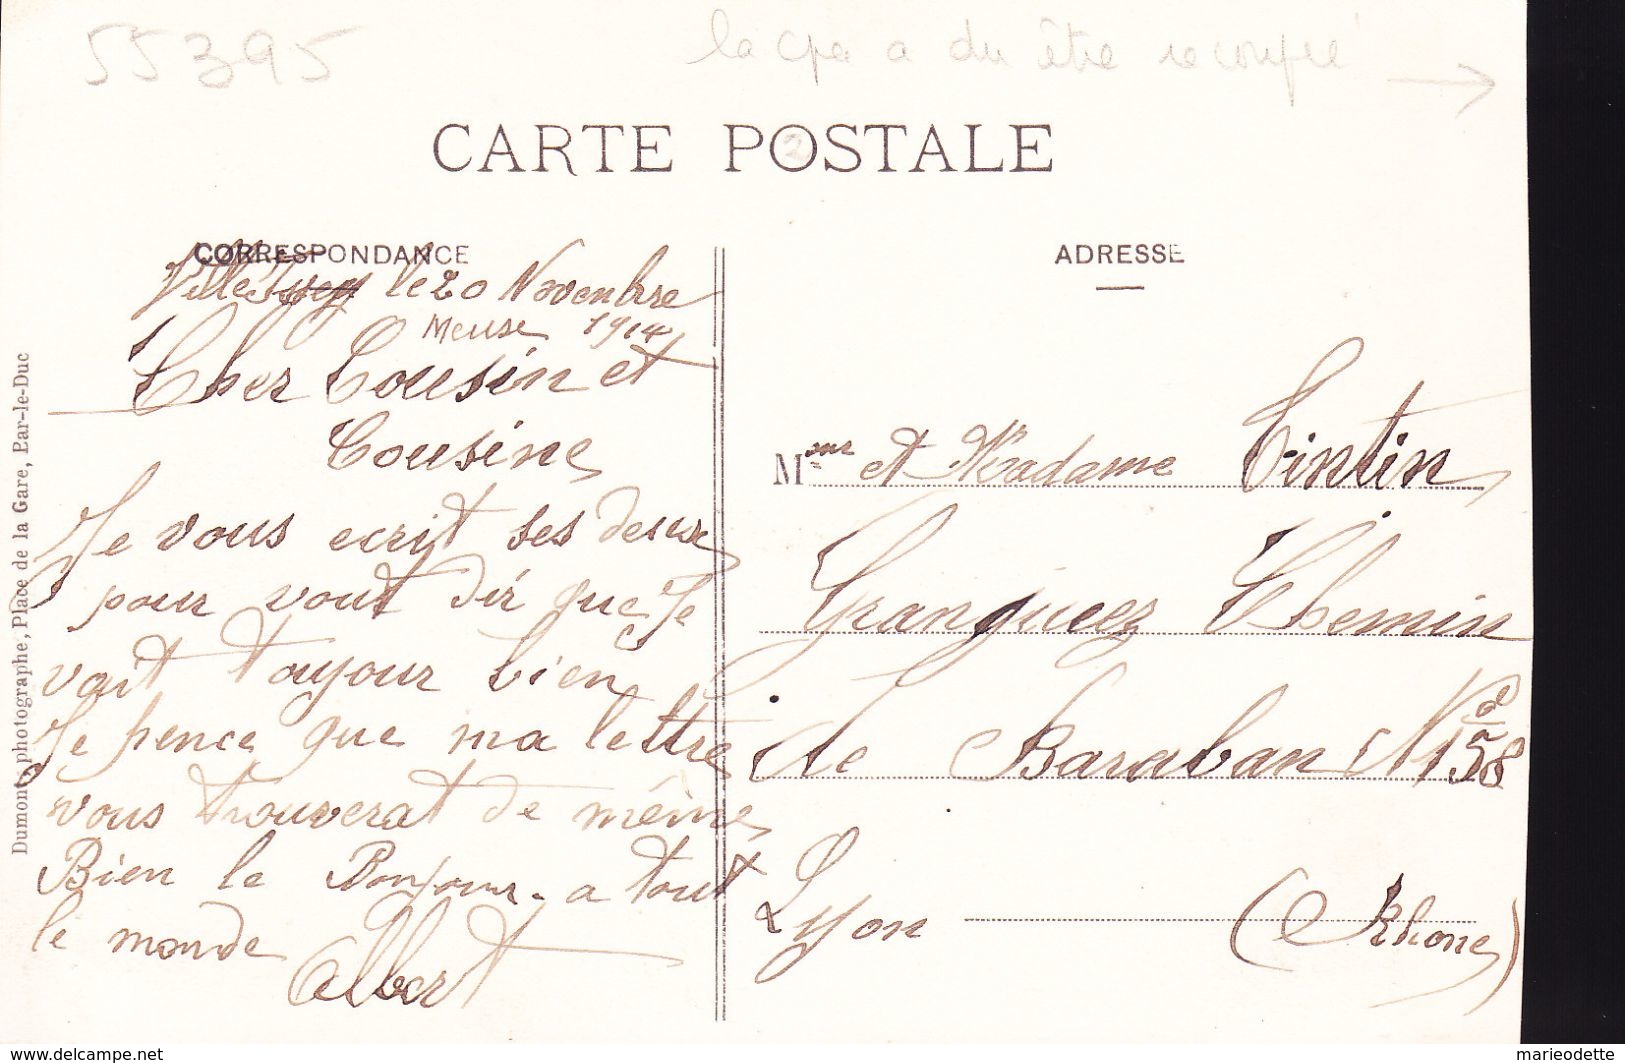 55395
la cpa a du être recoupée →
CARTE POSTALE
CORRESPONDANCE
ADRESSE
le 20 Novenbre
Meuse 1914
Cher Cousin et
Cousine
Je vous ecrit ses deux
pour vout dir que Je
vait toujour bien
Je pence que ma lettre
vous trouverat de même
Bien le Bonjour a tout
le monde
Albert
Mr et Madame Tintin
Chemin
de Baraban No 158
Lyon (Rhone)
Dumont, photographe, Place de la Gare, Bar-le-Duc
www.delcampe.net
marieodette